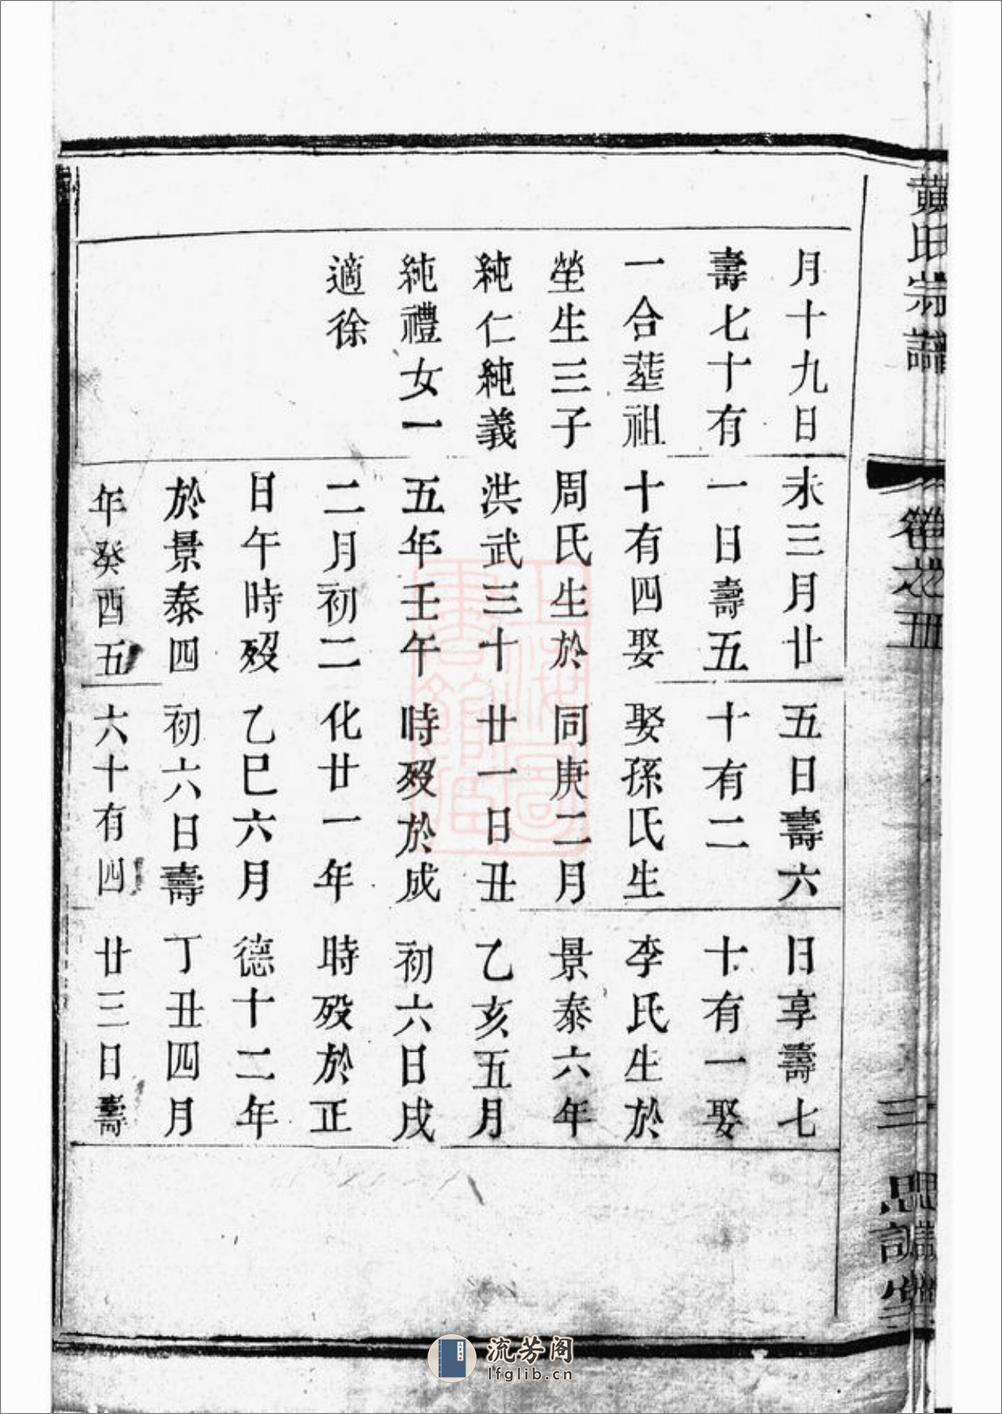 黃氏宗譜
卷之
三
思
堂
月十九日
壽七十有
一合塟祖
塋生三子
純仁純義
純禮女一
適徐
未三月廿
一日壽五
十有四娶
周氏生於
洪武三十
五年壬午
二月初二
日午時歿
於景泰四
年癸酉五
五日壽六
十有二
娶孫氏生
同庚二月
廿一日丑
時歿於成
化廿一年
乙巳六月
初六日壽
六十有四
日享壽七
十有一娶
李氏生於
景泰六年
乙亥五月
初六日戌
時歿於正
德十二年
丁丑四月
廿三日壽
流芳阁
lfglib.cn